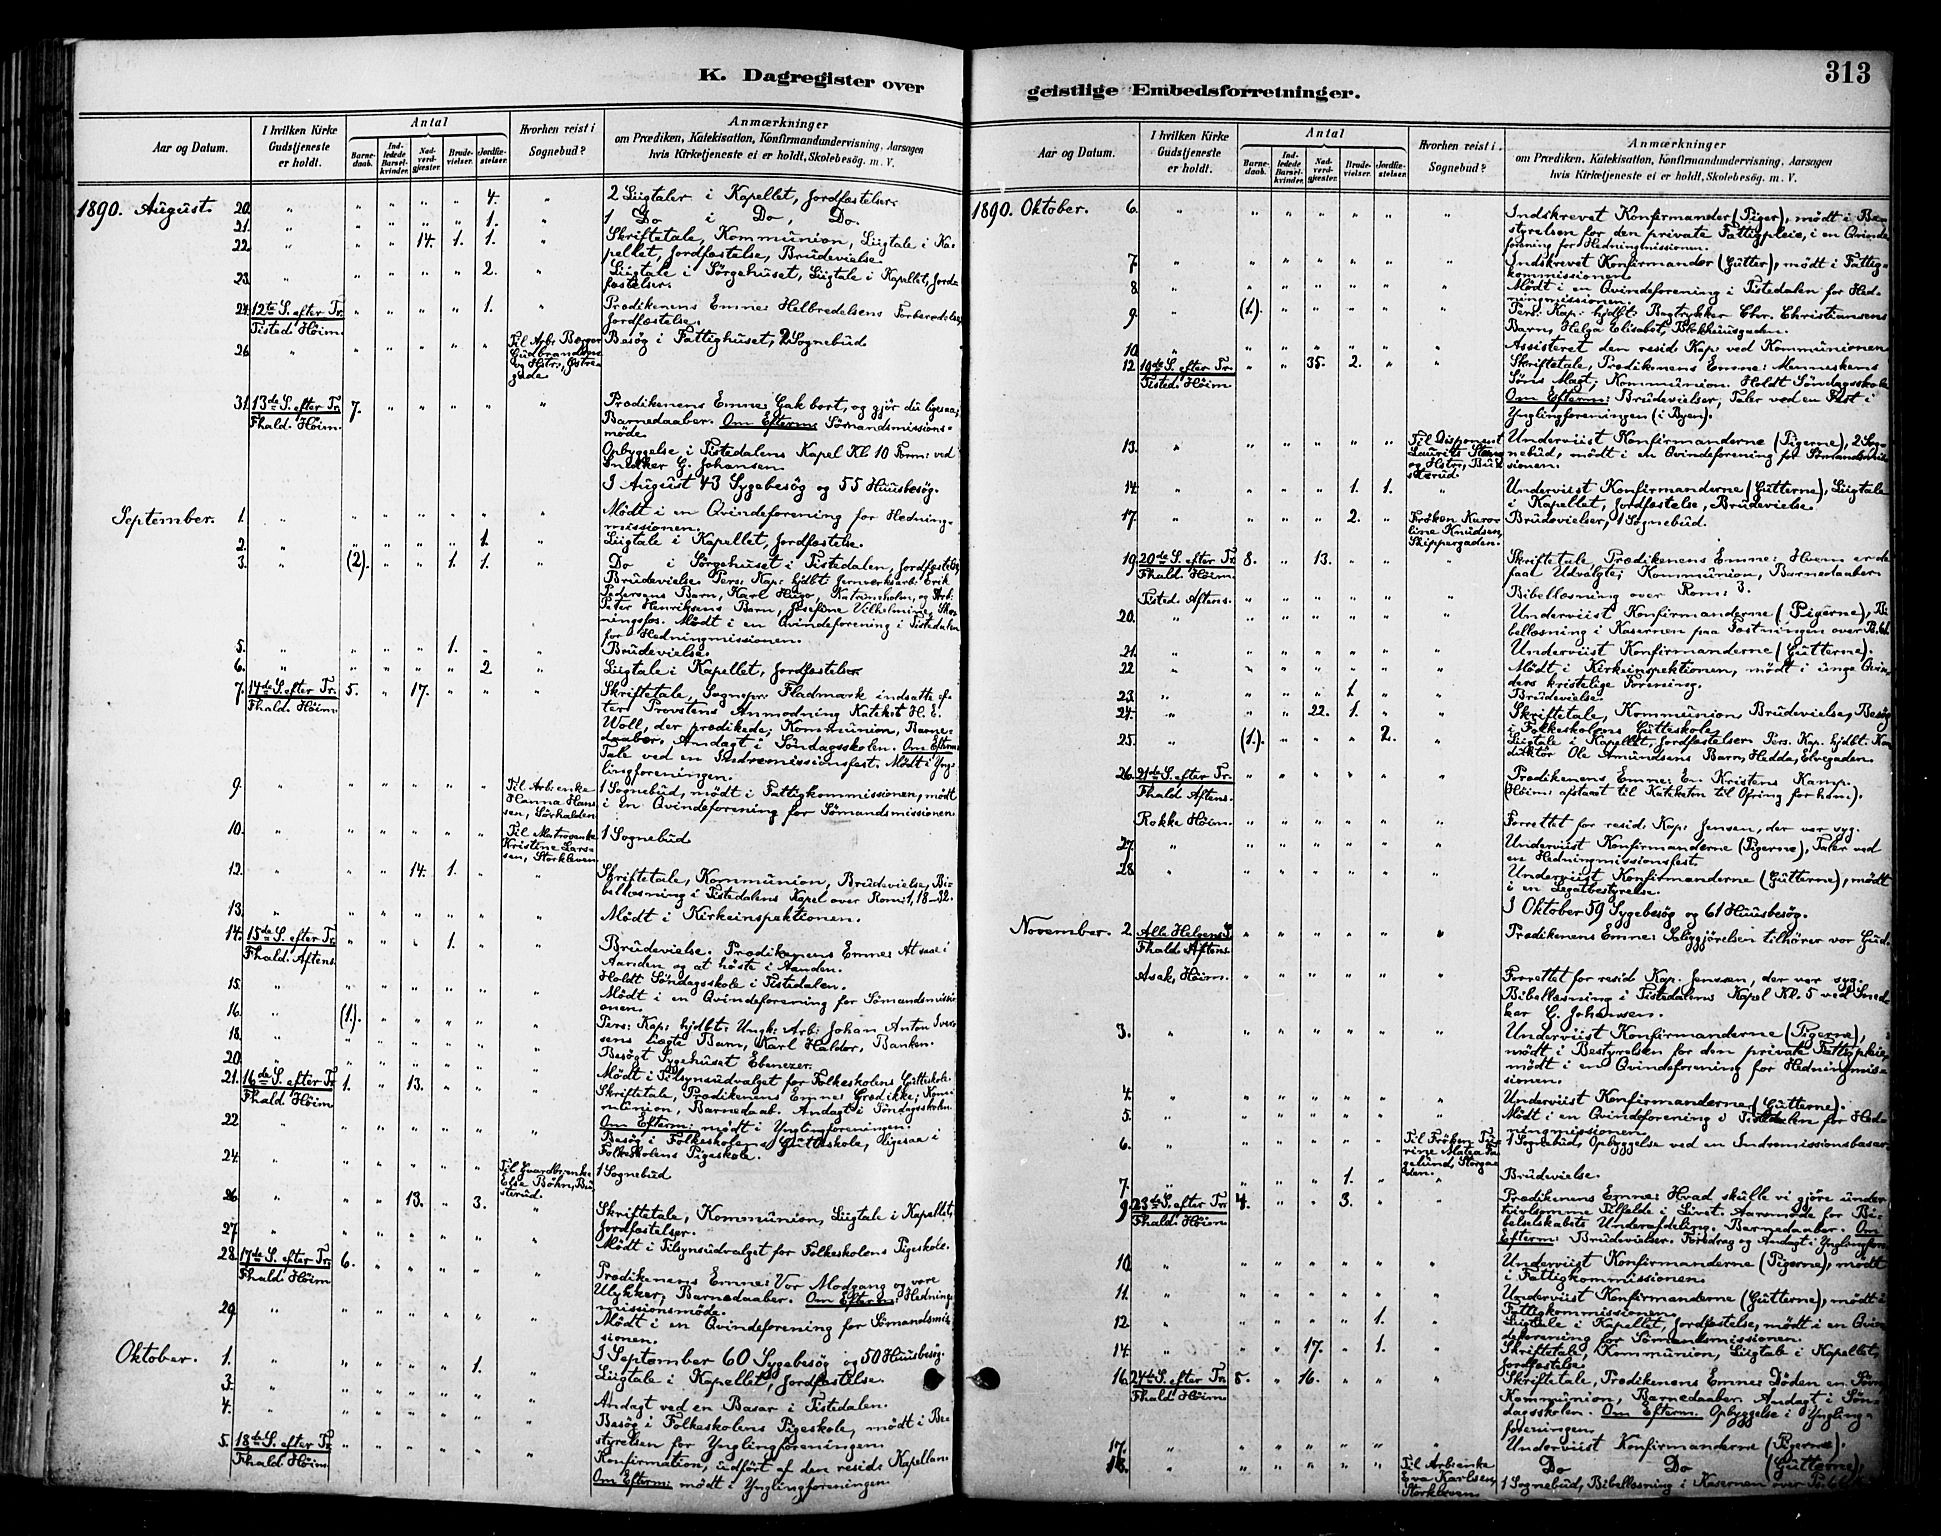 K. Dagregister over
Aar og Datum.
I hvilken Kirke Gudstjeneste er holdt.
Antal
Barnedaab.
Indledede Barselkvinder.
Nadverdgjester.
Brudevielser.
Jordfæstelser.
Hvorhen reist i Sognebud?
Anmærkninger
om Prædiken, Katekisation, Konfirmandundervisning, Aarsagen
hvis Kirketjeneste ei er holdt, Skolebesög. m. V.
1890. August. 20. " " " " " 4. " 2 Liigtaler i Kapellet, Jordfæstelser.
21. " " " " " 1. 1 Do i Do, Do.
22. " " " 14. 1. 1. " Skriftetale, Kommunion, Liigtale i Ka-
pellet, Jordfæstelse, Brudevielse.
23. " " " " " 2. " Liigtale i Sørgehuset, Liigtale i Kapellet, Jord-
fæstelser.
24. 12te S. efter Tr. " " " " 1. Prædikenens Emne: Helbredelsens Forberedelse,
Tisted. Høim. Jordfæstelse.
26. " " " " " " Til Arb: Børger Besøg i Fattighuset, 2 Sognebud
Gudbrandsens
og Hstr.: Østre
gade
31. 13de S. efter Tr. 7. " " " " " Prædikenens Emne: Gak bort, og gjør du ligesaa;
Fhald. Høim. Barnedaaber. Om Efterm: Sømandsmissions-
møde.
Opbyggelse i Tistedalens Kapel Kl. 10 Form: ved
Snedker G. Johansen.
I August 43 Sygebesøg og 55 Huusbesøg.
September. 1. " " " " " " " Mødt i en Qvindeforening for Hedning-
missionen.
2. " " " " " 1. Liigtale i Kapellet, Jordfæstelse.
3. " (2). " " 1. 1. " Do i Sørgehuset i Tistedalen, Jordfæstelse,
Brudevielse. Pers: Kap: hjdbt. Jernværksarb: Erik
Pedersens Barn, Karl Hugo, Katrineholm, og Arb:
Peter Henriksens Barn, Josefine Vilhelmine, Skon-
ningsfos. Mødt i en Qvindeforening i Tistedalen
for Hedningmissionen.
5. " " " " 1. " " Brudevielse.
6. " " " " " 2 " Liigtale i Kapellet, Jordfæstelser
7. 14de S. efter Tr. 5. " 17. " " " Skriftetale, Sognepr: Fladmark indsatte ef-
Fhald. Høim. ter Provstens Anmodning Katekst H. E.
Woll, der prædikede; Kommunion, Barne-
daaber, Andagt i Søndagsskolen. Om Efterm:
Tale ved en Indremissionsfest. Mødt i Yng-
lingforeningen.
9. " " " " " " Til Arb:enke 1 Sognebud, mødt i Fattigkommissionen, mødt
Hanna Han- i en Qvindeforening for Sømandsmissionen
sen, Sørhalden
10. " " " " " " Til Matrosenke 1 Sognebud
Kristine Lars-
sen, Storkleven
12. " " " 14. 1. " " Skriftetale, Kommunion, Brudevielse, Bi-
bellæsning i Tistedalens Kapel over Rom: 1, 18–32.
13. " " " " " " " Mødt i Kirkeinspektionen.
14. 15de S. efter Tr. " " " 1. " " Brudevielse. Prædikenens Emne: At saae i
Fhald. Aftens. Aanden og at høste i Aanden.
Holdt Søndagsskole i Tistedalen.
15. " " " " " " " Mødt i en Qvindeforening for Sømandsmissi-
onen.
16. " (1). " " " " " Pers: Kap: hjdbt: Ungk: Arb: Johan Anton Iver-
sens uægte Barn, Karl Haldor, Banken.
18. " " " " " " " Besøgt Sygehuset Ebenezer.
20. " " " " " " " Mødt i Tilsynsudvalget for Folkeskolens Gutteskole.
21. 16de S. efter Tr. 1. " 13. " " " Skriftetale, Prædikenens Emne: Græd ikke; Kom-
Fhald. Høim. munion, Barnedaab. Andagt i Søndagsskolen.
Om Efterm: mødt i Ynglingforeningen.
22 " " " " " " " Besøg i Folkeskolens Gutteskole, ligesaa i
Folkeskolens Pigeskole.
24. " " " " " " Til Guardbr:enke 1 Sognebud
Else Bøhn, Bu-
sterud.
26 " " " 13. " 3. " Skriftetale, Kommunion, Liigtale i Kapellet,
Jordfæstelser.
27. " " " " " " " Mødt i Tilsynsudvalget for Folkeskolens Pigeskole.
28. 17de S. efter Tr. 6. " " " " " Prædikenens Emne: Vor Modgang og vore
Fhald. Høim Ulykker, Barnedaaber. Om Efterm: Hedning-
missionsmøde.
29. " " " " " " " Mødt i en Qvindeforening for Sømandsmis-
sionen.
I September 60 Sygebesøg og 50 Huusbesøg.
Oktober. 1. " " " " " 1. " Liigtale i Kapellet, Jordfæstelse.
3. " " " " " " " Andagt ved en Basar i Tistedalen.
4. " " " " " " " Besøg i Folkeskolens Pigeskole, mødt i Be-
styrelsen for Ynglingforeningen
5. 18de S. efter Tr. " " " " " " Konfirmation, udført af den resids Kapellan.
Fhald. Høim. Om Efterm: mødt i Ynglingforeningen
geistlige Embedsforretninger.
313
Aar og Datum.
I hvilken Kirke Gudstjeneste er holdt.
Antal
Barnedaab.
Indledede Barselkvinder.
Nadverdgjester.
Brudevielser.
Jordfæstelser.
Hvorhen reist i Sognebud?
Anmærkninger
om Prædiken, Katekisation, Konfirmandundervisning, Aarsagen
hvis Kirketjeneste ei er holdt, Skolebesög. m. V.
1890. Oktober. 6. " " " " " " " Indskrevet Konfirmander (Piger), mødt i Be-
styrelsen for den private Fattigpleie, i en Qvinde
forening for Hedningmissionen.
7. " " " " " " " Indskrevet Konfirmander (Gutter), mødt i Fattig-
kommissionen.
8. " " " " " " Mødt i en Qvindeforening i Tistedalen for Hed-
ningmissionen.
9. " (1.) " " " " " Pers: Kap: hjdbt: Bogtrykker Chr. Christiansens
Barn, Helga Elisabet, Blokhusgaden.
10. " " " " " " " Assisteret den resid. Kap: ved Kommunionen
12 19de S. efter Tr. " " 35. 2. " " Skriftetale, Prædikenens Emne: Menneskens
Tisted. Høim Søns Magt, Kommunion. Holdt Søndagsskole
Om Efterm: Brudevielser, Taler ved en Fest i
Ynglingforeningen (i Byen).
13. " " " " " " Til Disponent Underviist Konfirmanderne (Pigerne), 2 Sog-
Laurits Stang nebud, mødt i en Qvindeforening for Sømandsmis-
og Hstr, Bu- sionen.
sterud
14. " " " " 1. 1. " Underviist Konfirmanderne (Gutterne), Liigtale
i Kapellet, Jordfæstelse, Brudevielse.
17. " " " " 2. " Frøken Karo- Brudevielser, 1 Sognebud.
line Knudsen,
Skippergaden.
19. 20de S. efter Tr. 8. " 13. " " " Skriftetale, Prædikenens Emne: Hvem er de
Fhald. Høim. faa Udvalgte; Kommunion, Barnedaaber
Tisted. Aftens. " " " " " " Bibellæsning over Rom: 3.
20. " " " " " " " Underviist Konfirmanderne (Pigerne), Bi-
bellæsning i Kasernen paa Fæstningen over
21. " " " " " " " Underviist Konfirmanderne (Gutterne).
22 " " " " " " " Mødt i Kirkeinspektionen, mødt i unge Qvin-
ders kristelige Forening.
23. " " " " 1 " " Brudevielse
24. " " " 22. 1. " " Skriftetale, Kommunion, Brudevielse, Besøg
i Folkeskolens Gutteskole
25. " (1.). " " " 2. " Liigtale i Kapellet, Jordfæstelser. Pers. Kap. hjdbt: Kon-
duktør Ole Amundsens Barn, Hedda, Elvegaden.
26. 21de S. efter Tr. " " " " " " Prædikenens Emne: En Kristens Kamp.
Fhald. Aftens. (Høim: afstaaet til Kateketen til Ofring for ham.).
Rokke Høim. " " " " " " Forrettet for resid. Kap: Jensen, der var syg.
27. " " " " " " " Underviist Konfirmanderne (Pigerne), Taler ved
en Hedningmissionsfest.
28. " " " " " " " Underviist Konfirmanderne (Gutterne), mødt
i en Legatbestyrelse.
I Oktober 59 Sygebesøg og 61 Huusbesøg.
November. 2. Alle Helgens D. " " " " " " Prædikenens Emne: Saliggjørelsen tilhører vor Gud.
Fhald. Aftens.
Asak, Høim. " " " " " " Forrettet for resid Kap: Jenssen, der var syg.
Bibellæsning i Tistedalens Kapel Kl. 5 ved Sned-
ker G. Johansen.
3. " " " " " " " Underviist Konfirmanderne (Pigerne),
mødt i Bestyrelsen for den private Fattigpleie,
mødt i en Qvindeforening for Hedningmis-
sionen.
4. " " " " " " " Underviist Konfirmanderne (Gutterne).
5. " " " " " " " Mødt i en Qvindeforening i Tistedalen for Hed-
ningmissionen.
6. " " " " " " Til Frøken 1 Sognebud, Opbyggelse ved en Indremissionsbasar.
rine Matea
gelund, Storga-
den.
7. " " " " 1. " " Brudevielse.
9. 23de S. efter Tr. 4. " " 3. " " Prædikenens Emne: Hvad skulle vi gjøre under
Fhald. Høim. tvivlsomme Tilfælde i Livet. Aarsmøde for Bi-
belselskabets Underafdeling. Barnedaaber. Om
Efterm: Brudevielser. Foredrag og Andagt i Ynglingforen.
10. " " " " " " " Underviist Konfirmanderne (Pigerne), mødt
i Fattigkommissionen.
11. " " " " " " " Underviist Konfirmanderne (Gutterne), mødt i
Fattigkommissionen.
12 " " " " " 1. Liigtale i Kapellet, Jordfæstelse, mødt i en Qvin-
deforening for Sømandsmissionen.
14. " " " 17. " 1. " Skriftetale, Kommunion, Liigtale i Kapellet,
Jordfæstelse.
16. 24de S. efter Tr. 5. " 16. " " " Skriftetale, Prædikenens Emne: Døden en Søvn;
Fhald Høim. Kommunion, Barnedaaber. Andagt i Søn-
dagsskolen. Om Efterm. Opbyggelse i Yngling-
foreningen.
17. " " " " " " " Underviist Konfirmanderne (Pigerne).
18. " " " " " " Til Arb:enke Do Do (Gutterne),
Eva Karlsen, 1 Sognebud, Bibellæsning i Kasernen over
Storkleven